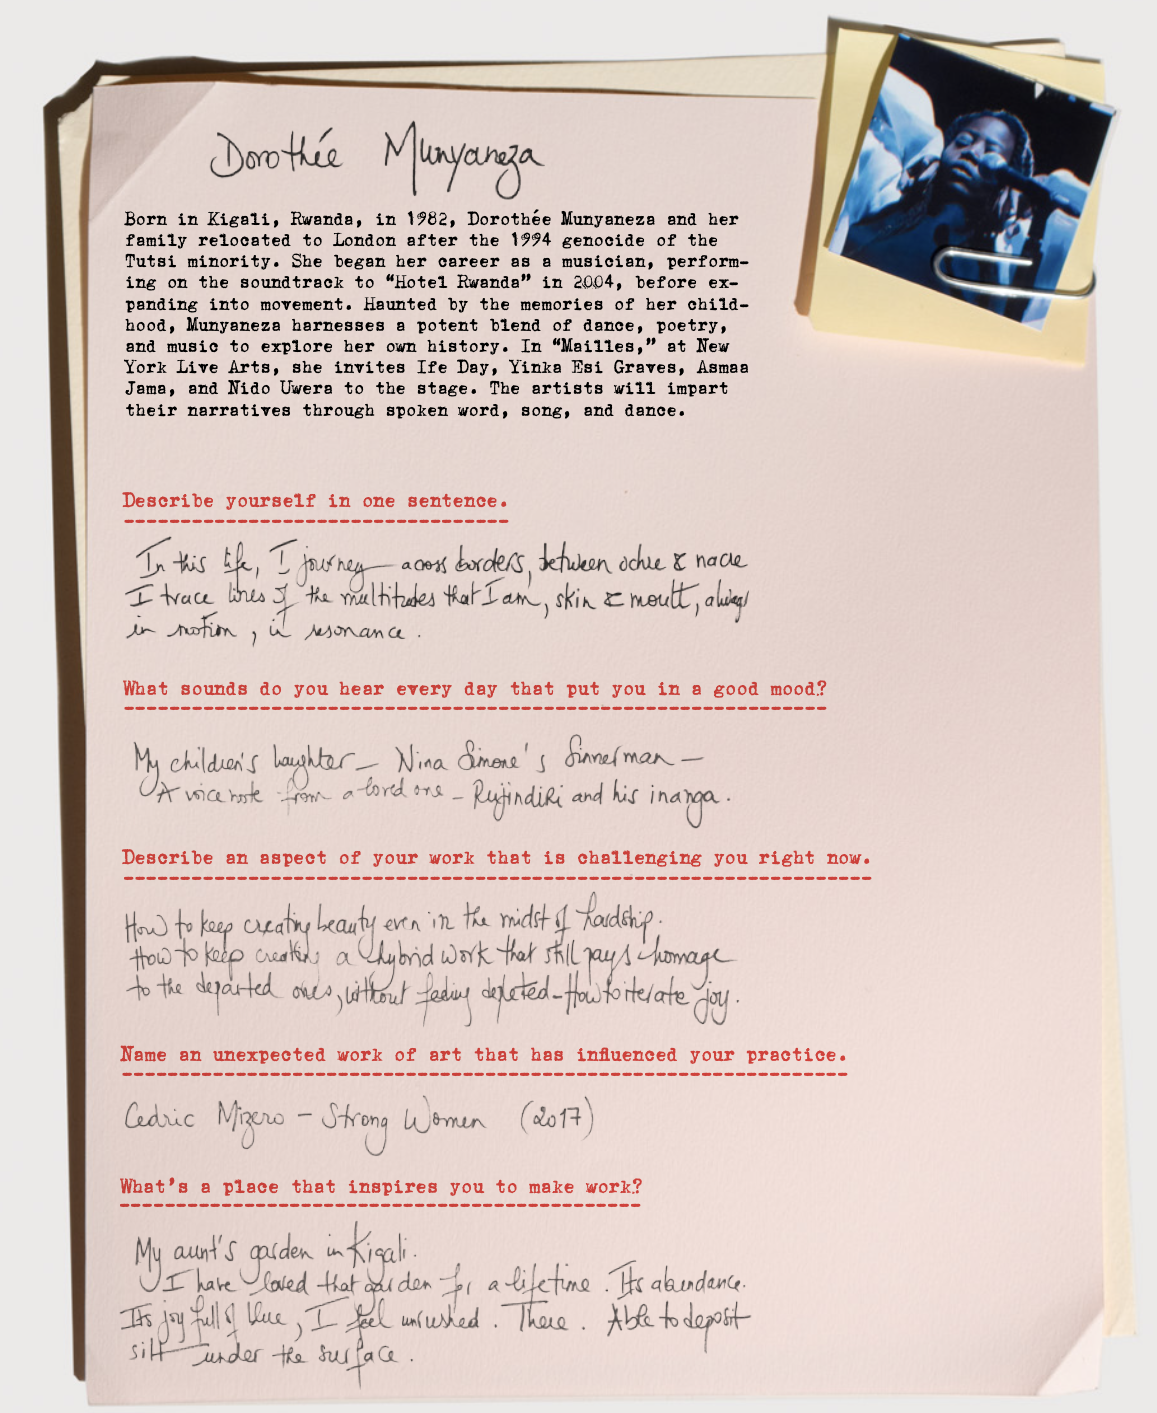 Dorothée Munyaneza
Born in Kigali, Rwanda, in 1982, Dorothée Munyaneza and her
family relocated to London after the 1994 genocide of the
Tutsi minority. She began her career as a musician, perform-
ing on the soundtrack to “Hotel Rwanda” in 2004, before ex-
panding into movement. Haunted by the memories of her child-
hood, Munyaneza harnesses a potent blend of dance, poetry,
and music to explore her own history. In “Mailles,” at New
York Live Arts, she invites Ife Day, Yinka Esi Graves, Asmaa
Jama, and Nido Uwera to the stage. The artists will impart
their narratives through spoken word, song, and dance.
Describe yourself in one sentence.
In this life, I journey across borders, between ochre & nacre
I trace lines of the multitudes that I am, skin & moult, always
in motion, in resonance.
What sounds do you hear every day that put you in a good mood?
My children's laughter – Nina Simone's Sinnerman –
A voice note from a loved one – Rujindiri and his inanga.
Describe an aspect of your work that is challenging you right now.
How to keep creating beauty even in the midst of hardship.
How to keep creating a hybrid work that still pays homage
to the departed ones, without feeling depleted – How to iterate joy.
Name an unexpected work of art that has influenced your practice.
Cedric Mizero – Strong Women (2017)
What's a place that inspires you to make work?
My aunt's garden in Kigali.
I have loved that garden for a lifetime. Its abundance.
Its joy full of blue, I feel unrushed. There. Able to deposit
silt under the surface.